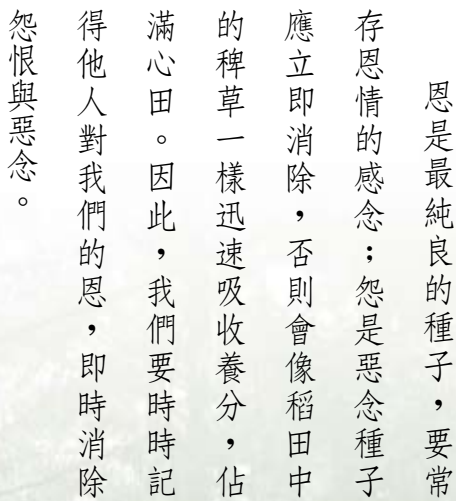 恩是最純良的種子，要常
存恩情的感念；怨是惡念種子
應立即消除，否則會像稻田中
的稗草一樣迅速吸收養分，佔
滿心田。因此，我們要時時記
得他人對我們的恩，即時消除
怨恨與惡念。